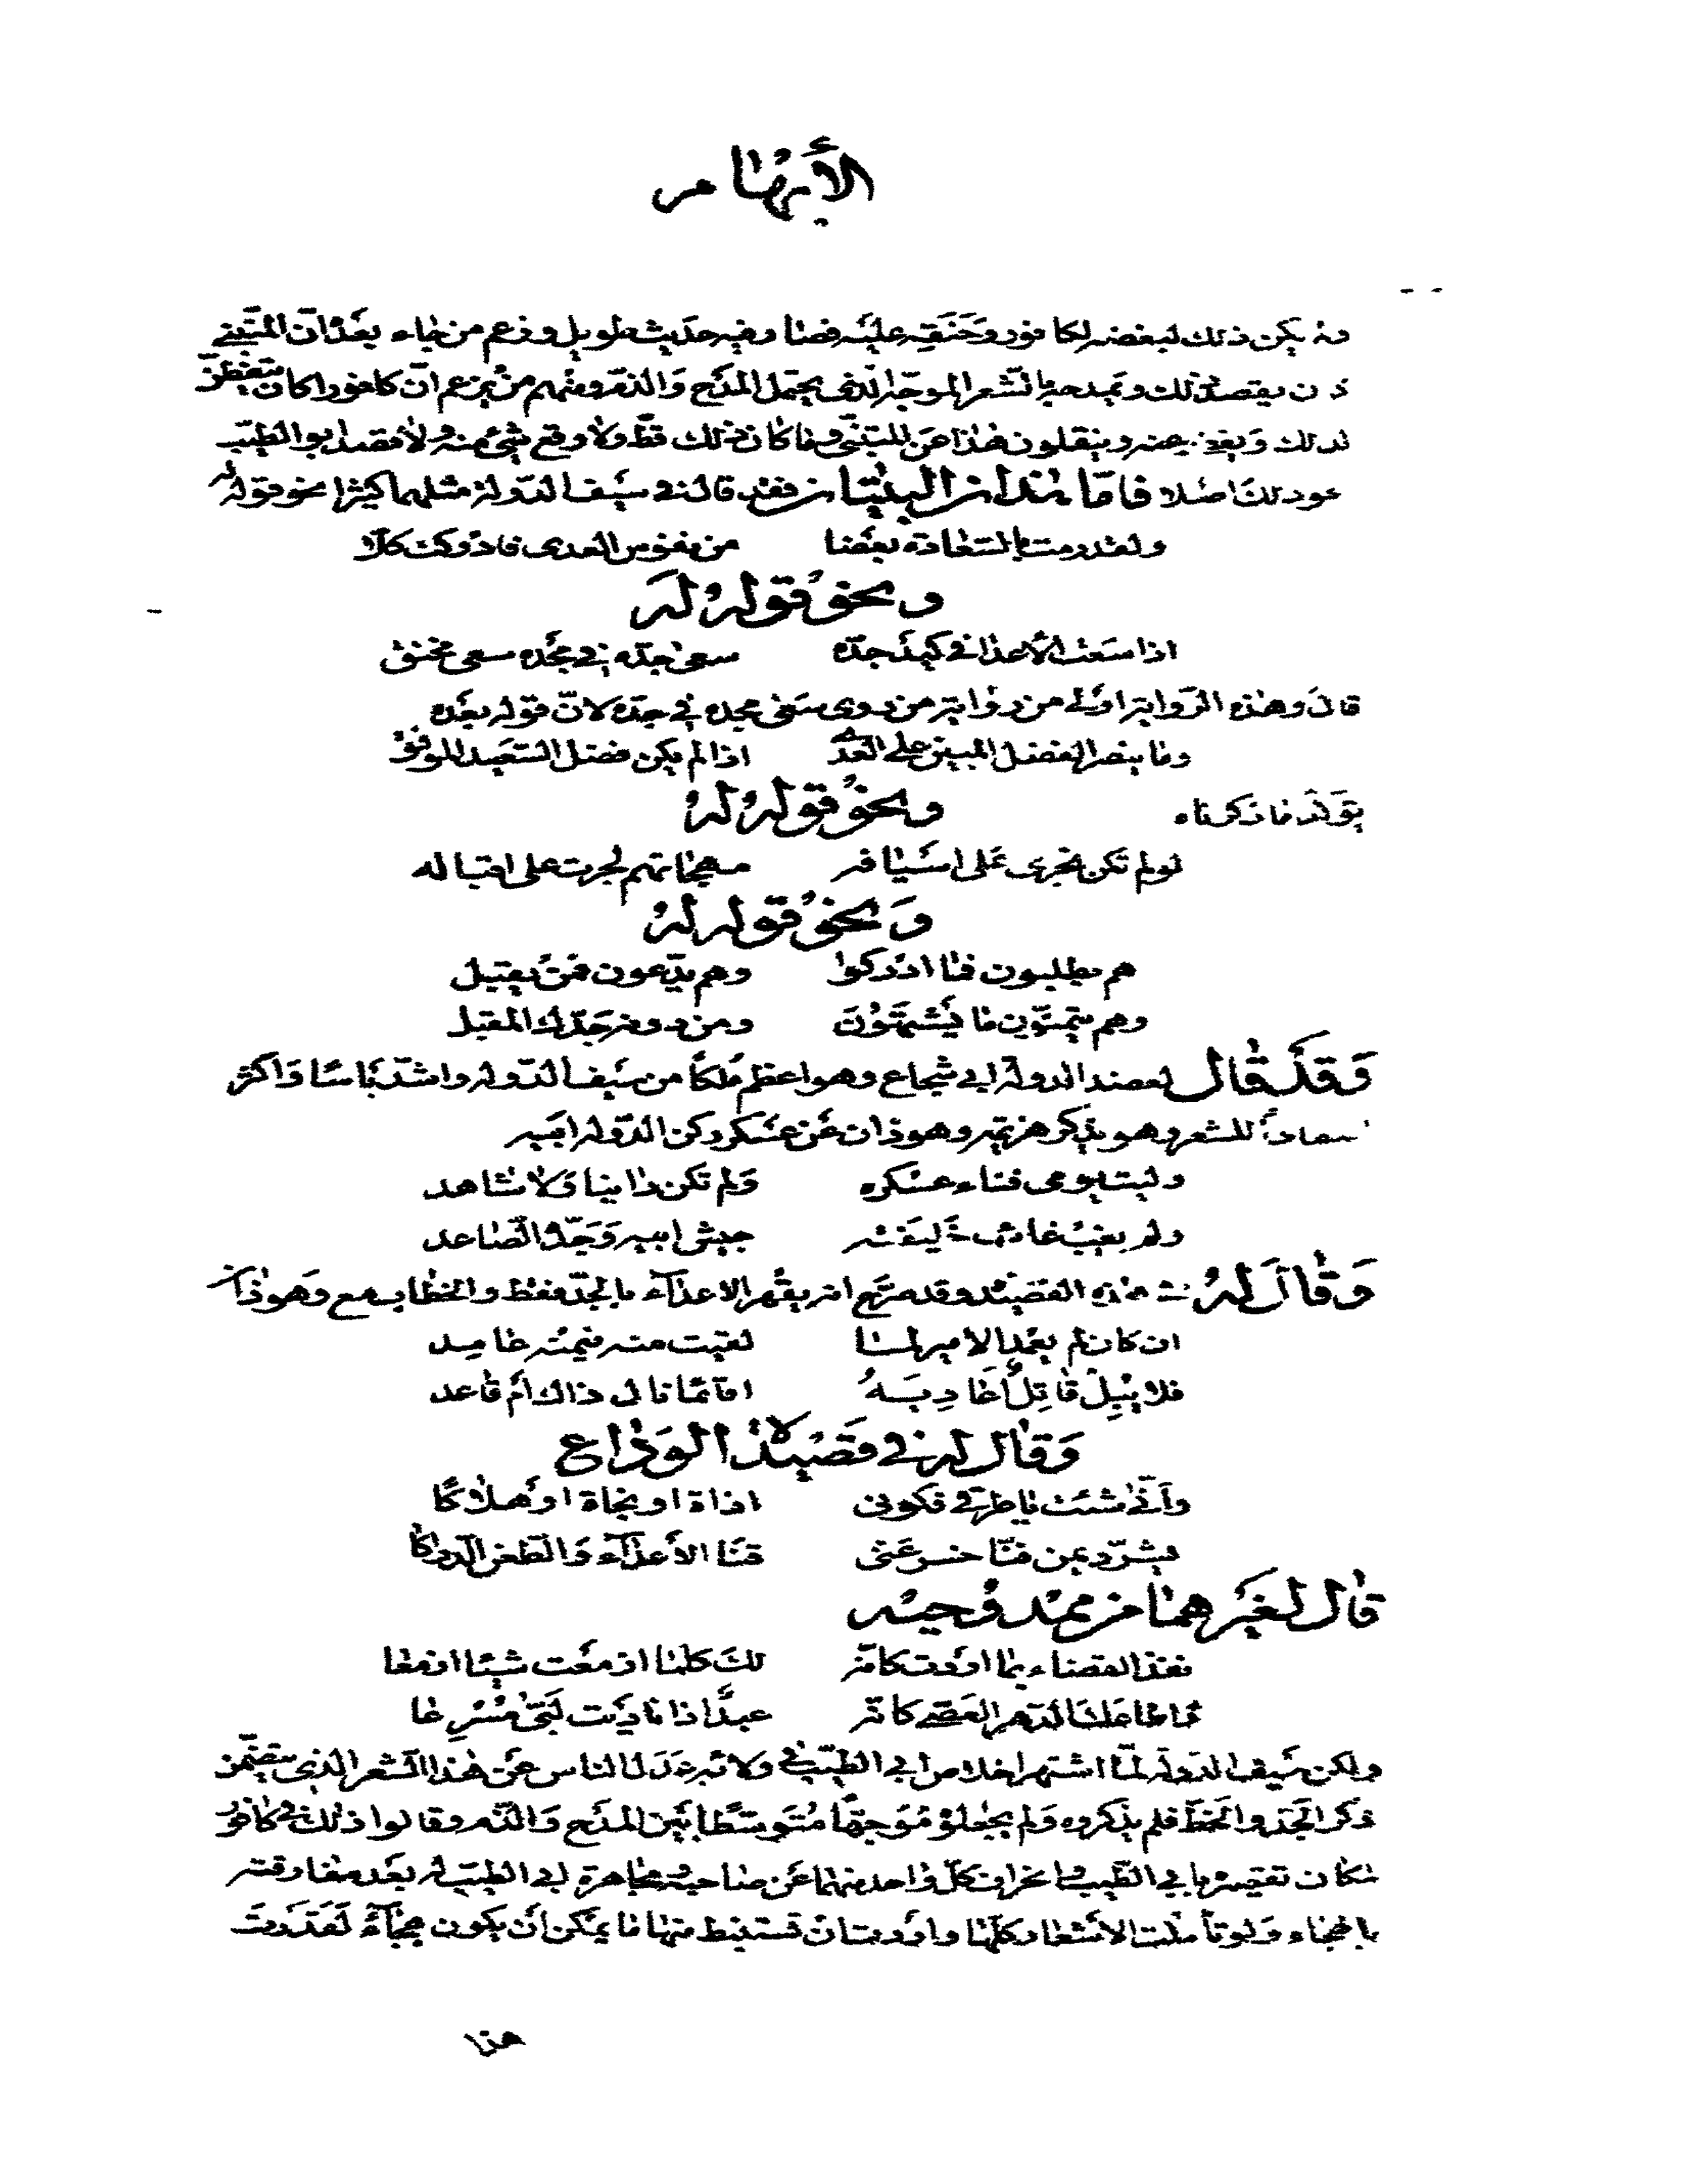 الأبهام
ولم يكن ذلك لبغضه لكافور وحنقه عليه فصنا وفيه حديث طويل وزعم من جاء بعد ان المتنبي
كان يقصد ذلك ويمدحه بالشعر الموجه الذى يحتمل المدح والذم ومنهم من يزعم ان كافورا كان يتفطن
لذلك ويغضى عنه وينقلون هذا عن المتنبى وما كان ذلك قط ولا وقع شئ منه ولا قصد ابو الطيب
نحو ذلك اصلا فاما هذان البيتان فقد قال فى سيف الدولة مثلهما كثيرا نحو قوله له
ولقد رمت بالسعادة بعضا من نفوس العدى فادركت كلا
ونحو قوله له
اذا سعت الأعدا في كيد جده سعى جده في مجده سعى محنق
قال وهذه الرواية اولى من رواية من روى سعى مجده في جده لان قوله بعده
وما ينصر الفضل المبين على العدى اذا لم يكن فضل السعيد الموفق
يؤكد ما ذكرناه ونحو قوله له
لو لم تكن تجرى على اسيافه مهجاتهم لجرت على اقباله
ونحو قوله له
هم يطلبون فما ادركوا وهم يدعون فمن يقبل
وهم يتمنون ما يشتهون ومن دونه جدك المقبل
وقد قال لعضد الدولة ابي شجاع وهو اعظم ملكا من سيف الدولة واشد بأسا واكثر
سماعا للشعر وهو يذكر هزيمة وهوذان عن عسكر ركن الدولة ابيه
وليت يومى فناء عسكره ولم تكن دانيا ولا شاهد
ولم يغب غائب خليفته جيش ابيه وجده الصاعد
وقال له في هذه القصيدة وقد صرح انه يقهر الاعداء بالجد فقط والخطاب مع وهوذان
ان كان لم يعمد الامير لما لقيت منه فيمنه عامد
فلا يبل قاتل أعاديه اقائما نال ذاك أم قاعد
وقال له في قصيدة الوداع
وأنى شئت ياطرقى فكونى اذاة او نجاة او هلاكا
يشرد يمن فنا خسر عنى قنا الأعداء والطعن الدراكا
قال لغيرهما من ممدوحيه
نفذ القضاء بما اردت كانه لك كلما ازمعت شيئا ازمعا
واطاعك الدهر العصى كانه عبد اذا ناديت لبى مسرعا
ولكن سيف الدولة لما اشتهر اخلاص ابي الطيب في ولائه عدل الناس عن هذا الشعر الذى يتضمن
ذكر الجد والحظ فلم يذكروه ولم يجعلوه موجها متوسطا بين المدح والذم وقالوا ذلك في كافور
لمكان تقصيره بابي الطيب وانحراف كل واحد منهما عن صاحبه ومجاهرة ابي الطيب له بعد مفارقته
بالهجاء ولو تأملت الأشعار كلها واردت ان تستنبط منها ما يمكن أن يكون هجاء لقدرت
هذا